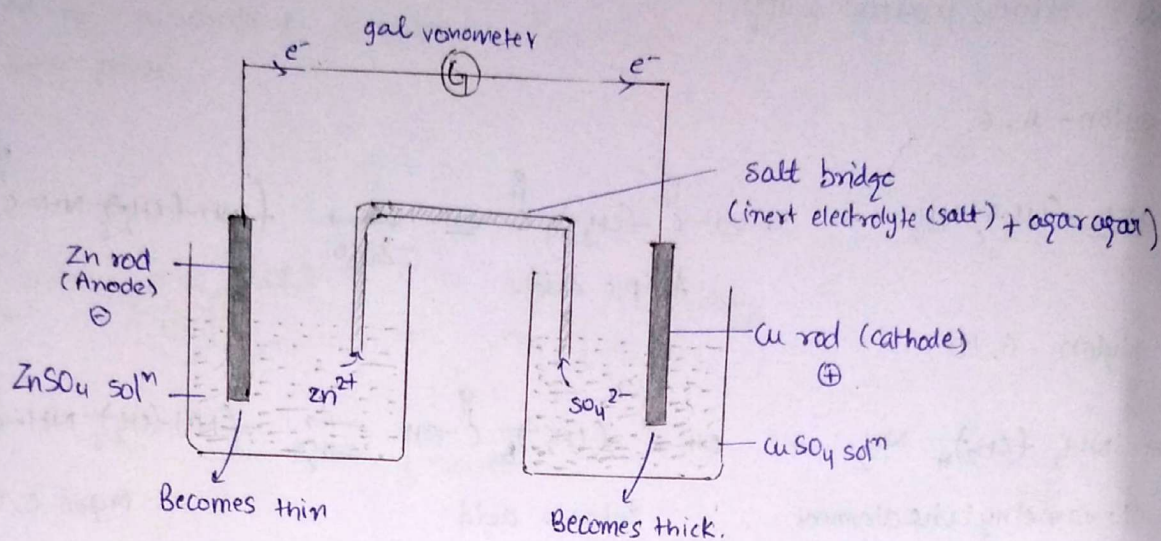 gal vonometer
e⁻
G
e⁻
salt bridge
(inert electrolyte (salt) + agar agar)
Zn rod
(Anode)
⊖
ZnSO₄ solⁿ
Zn²⁺
SO₄²⁻
Cu rod (cathode)
⊕
CuSO₄ solⁿ
Becomes thin
Becomes thick.